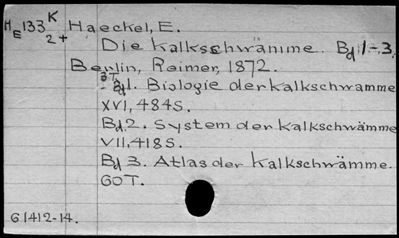 HE 133 K 2+ Haeckel, E.
Die Kalkschwämme. Bd 1-3.
Berlin, Reimer, 1872.
3 T.
Bd 1. Biologie der Kalkschwämme
XVI, 484S.
Bd 2. System der Kalkschwämme
VII, 418S.
Bd 3. Atlas der Kalkschwämme.
60T.
61412-14.